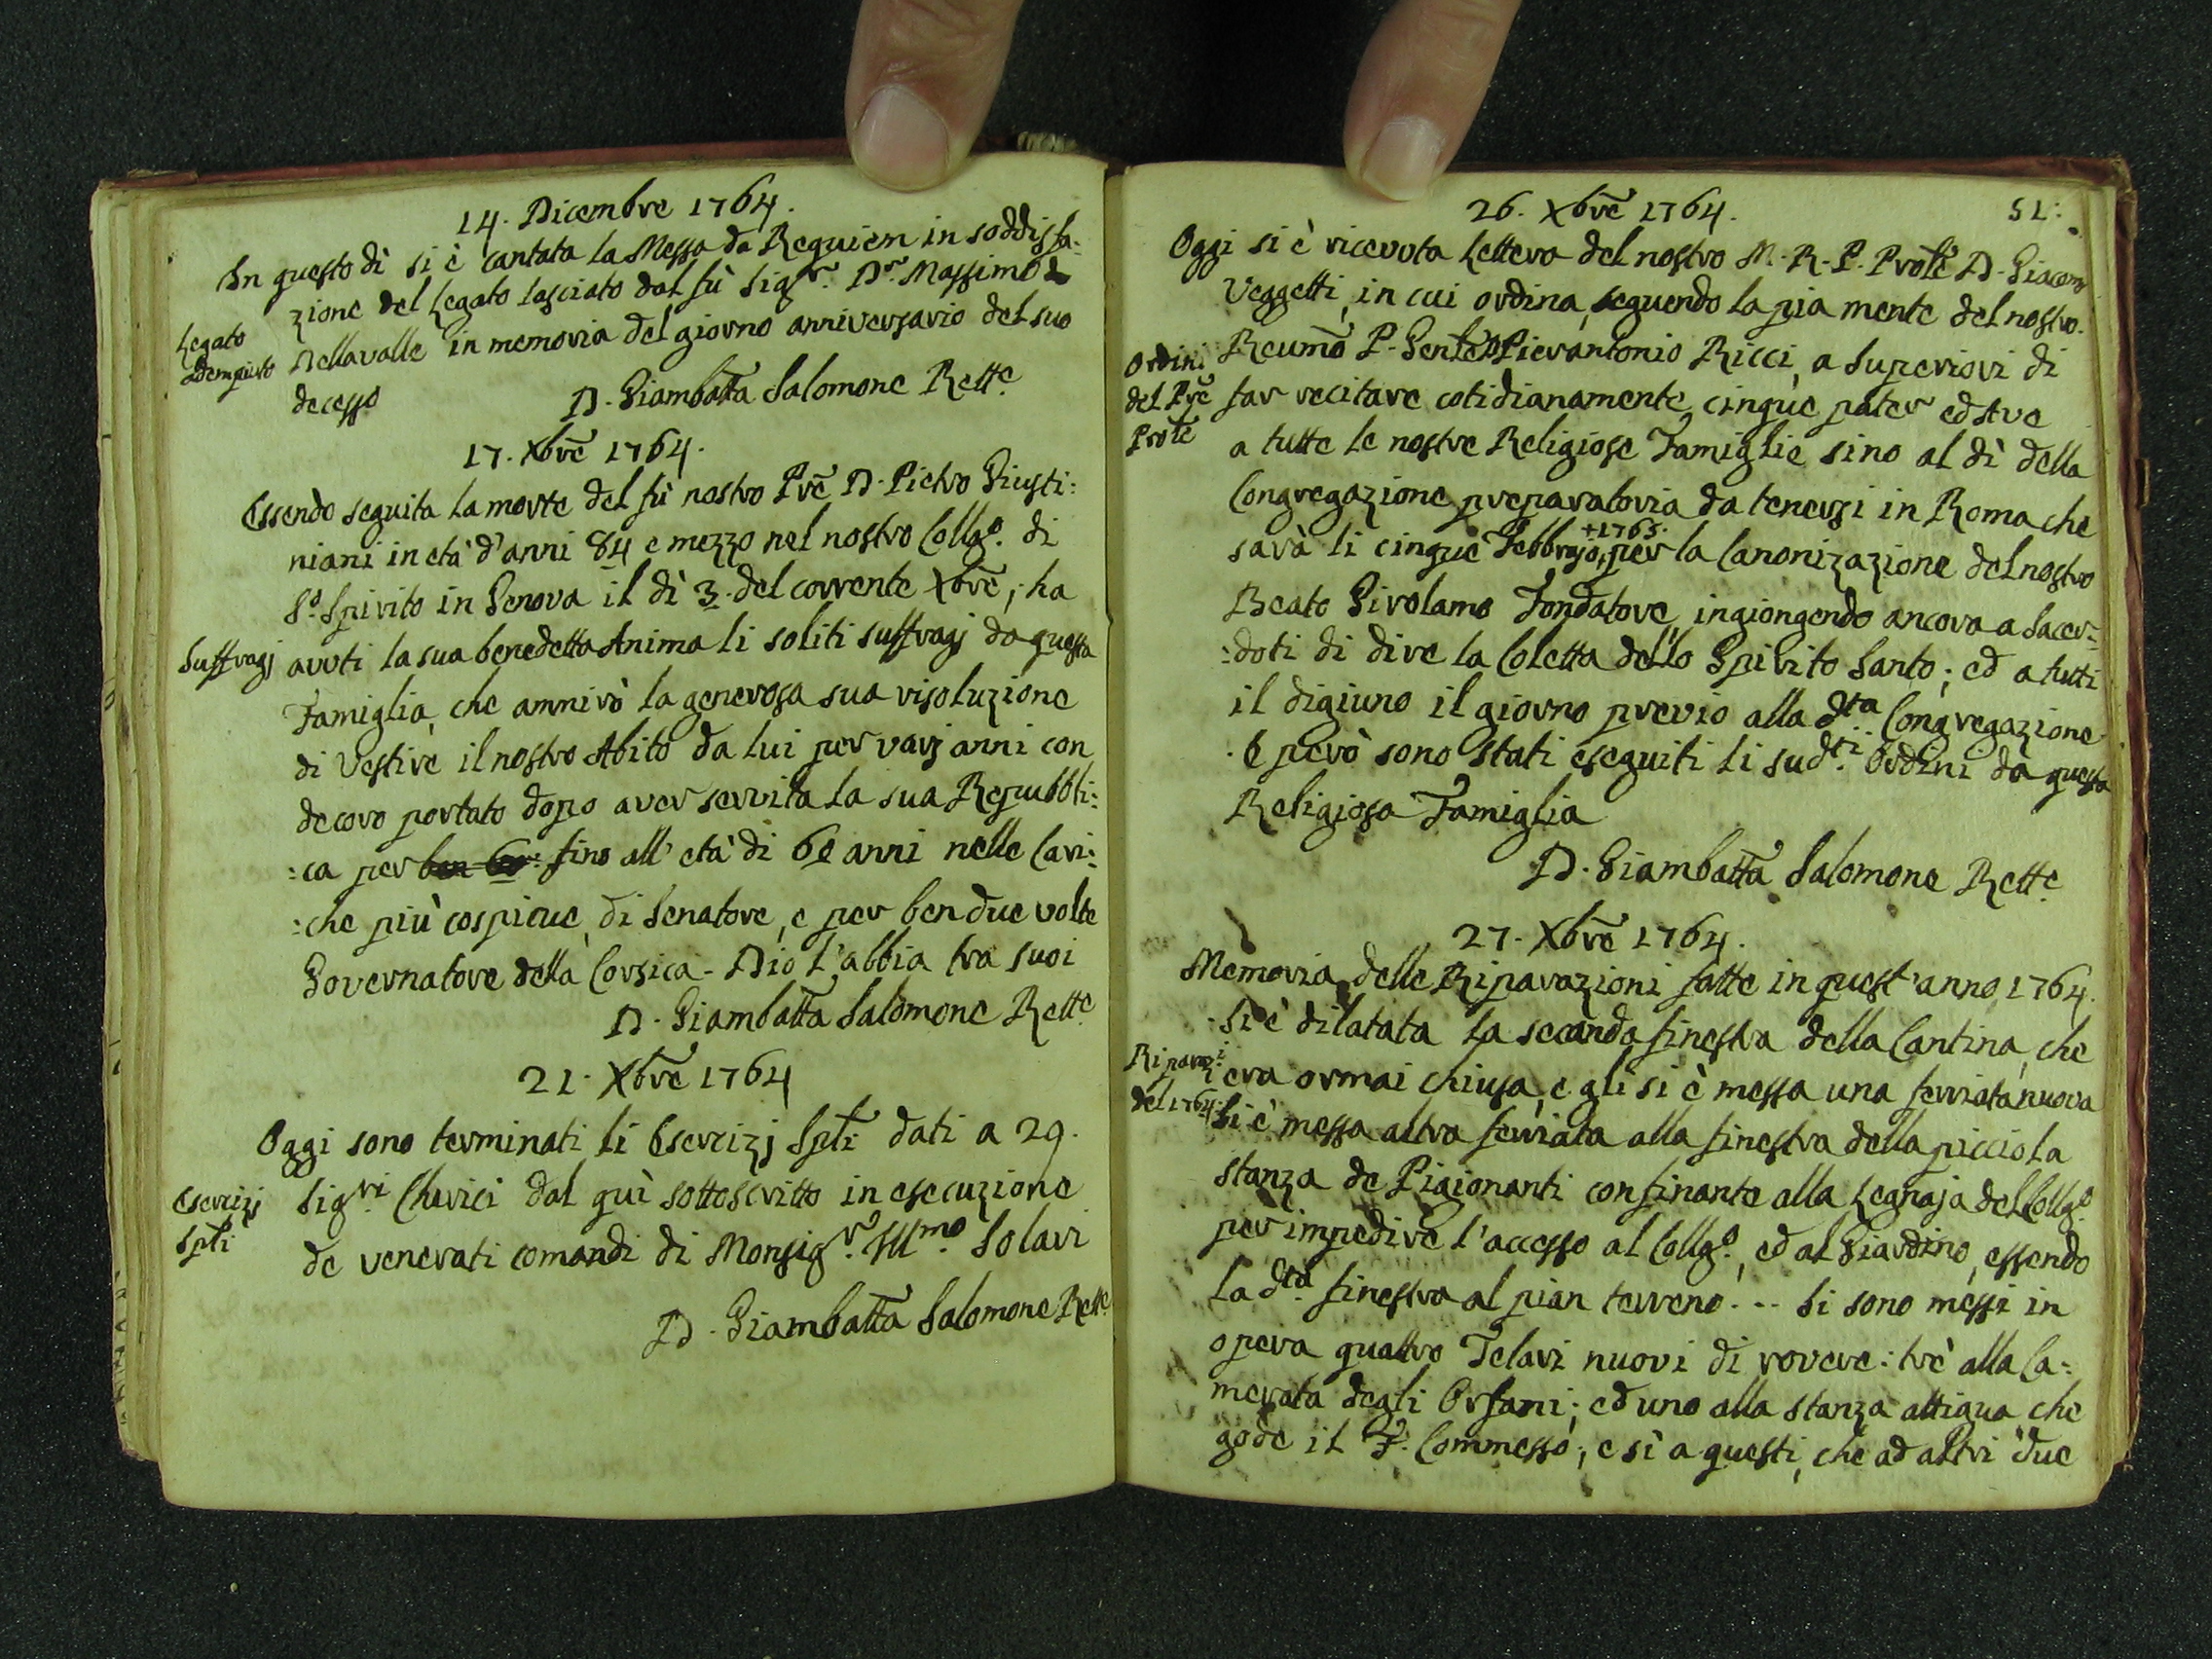 14. Dicembre 1764.
In questo dì si è cantata la Messa da Requiem in soddisfa:
zione del Legato lasciato dal fù Sig.r D.r Massimo
Legato
adempiuto
Dellavalle in memoria del giorno anniversario del suo
decesso
D. Giambatta Salomone Rett.e
17. Xbre 1764.
Essendo seguita la morte del fù nostro Pre D. Pietro Giusti:
niani in età d'anni 84 e mezzo nel nostro Collg.o di
S.o Spirito in Genova il dì 3. del corrente Xbre, ha
Suffragj
avuti la sua benedetta Anima li soliti suffragj da questa
Famiglia, che ammirò la generosa sua risoluzione
di Vestire il nostro Abito da lui per varj anni con
decoro portato dopo aver servita la sua Repubbli:
:ca per ben 60. fino all'età di 60 anni nelle Cari:
:che più cospicue, di Senatore, e per ben due volte
Governatore della Corsica. Dio l'abbia tra suoi
D. Giambatta Salomone Rett.e
21. Xbre 1764
Oggi sono terminati li Esercizj Spli dati a 29.
Esercizj
Spli
Sig.ri Chierici dal quì sottoscritto in esecuzione
de venerati comandi di Monsig.r Ill.mo Solari
D. Giambatta Salomone Rett.e
51:
26. Xbre 1764.
Oggi si è ricevuta Lettera del nostro M. R. P. Prole D. Giacomo
Veggetti, in cui ordina, seguendo la pia mente del nostro
Reumo P. Genle D Pierantonio Ricci, a Superiori di
Ordini
del Pre
Prole
far recitare cotidianamente cinque pater ed Ave
a tutte le nostre Religiose Famiglie sino al dì della
Congregazione preparatoria da tenersi in Roma che
+1765.
sarà li cinque Febbrajo, per la Canonizazione del nostro
Beato Girolamo Fondatore, ingiongendo ancora a Sacer:
:doti di dire la Coletta dello Spirito Santo; ed a tutti
il digiuno il giorno previo alla d.ta Congregazione
E però sono stati eseguiti li sud.ti Ordini da questa
Religiosa Famiglia
D. Giambatta Salomone Rett.e
27. Xbre 1764.
Memoria delle Riparazioni fatte in quest'anno 1764.
Si è dilatata la seconda finestra della Cantina, che
Riparazi
del 1764.
era ormai chiusa, e gli si è messa una ferriata nuova
Si è messa altra ferriata alla finestra della picciola
stanza de Pigionanti confinante alla Legnaja del Collg.o
per impedire l'accesso al Collg.o, ed al Giardino, essendo
la d.ta finestra al pian terreno. -- Si sono messi in
opera quattro Telari nuovi di rovere: trè alla Ca:
merata degli Orfani; ed uno alla stanza attigua che
gode il F. Commesso; e sì a questi, che ad altri due